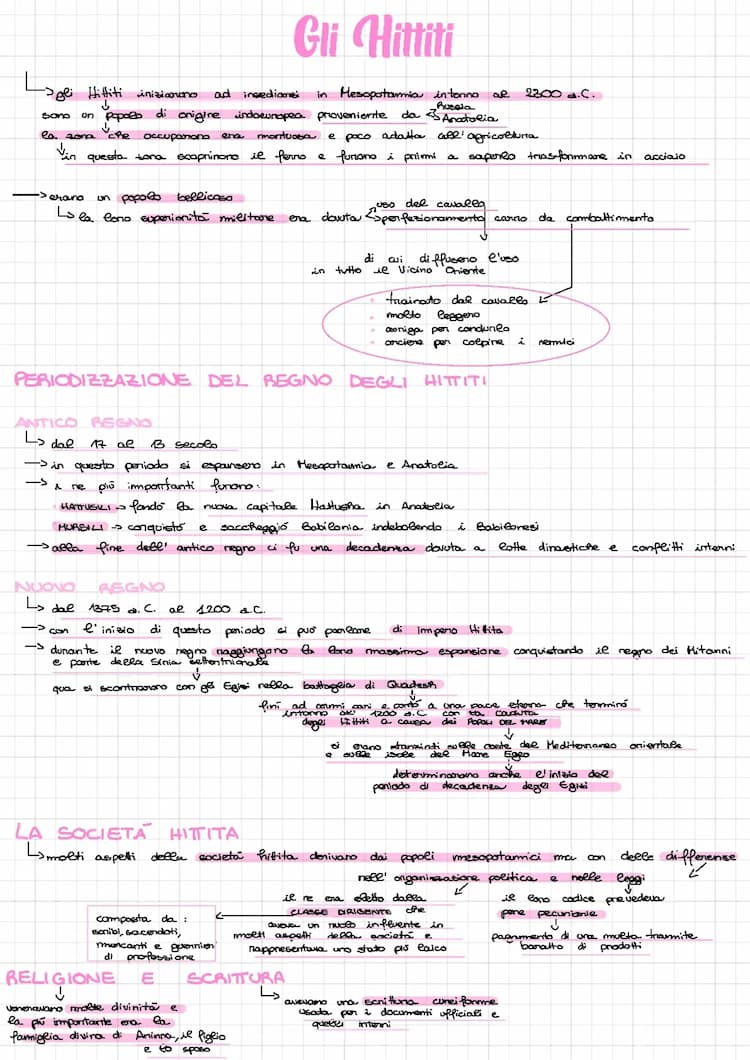 Gli Hittiti
gli Hittiti iniziarono ad insediarsi in Mesopotamia intorno al 2300 a.C.
sono un popolo di origine indoeuropea proveniente da Russia Anatolia
la zona che occuparono era montuosa e poco adatta all'agricoltura
in questa zona scoprirono il ferro e furono i primi a saperlo trasformare in acciaio
erano un popolo bellicoso
la loro superiorità militare era dovuta uso del cavallo perfezionamento carro da combattimento
di cui diffusero l'uso
in tutto il Vicino Oriente
trainato dal cavallo
molto leggero
auriga per condurlo
arciere per colpire i nemici
PERIODIZZAZIONE DEL REGNO DEGLI HITTITI
ANTICO REGNO
dal 17 al 13 secolo
in questo periodo si espansero in Mesopotamia e Anatolia
i re più importanti furono:
HATTUSILI → fondò la nuova capitale Hattusha in Anatolia
MURSILI → conquistò e saccheggiò Babilonia indebolendo i Babilonesi
alla fine dell'antico regno ci fu una decadenza dovuta a lotte dinastiche e conflitti interni
NUOVO REGNO
dal 1375 a.C. al 1200 a.C.
con l'inizio di questo periodo si può parlare di impero Hittita
durante il nuovo regno raggiungono la loro massima espansione conquistando il regno dei Mitanni
e parte della Siria settentrionale
qua si scontrarono con gli Egizi nella battaglia di Quadesh
finì ad armi pari e portò a una pace eterna che terminò
intorno al 1200 a.C con la caduta
degli Hittiti a causa dei POPOLI DEL MARE
si erano stanziati sulle coste del Mediterraneo orientale
e sulle isole del Mare Egeo
determinarono anche l'inizio del
periodo di decadenza degli Egizi
LA SOCIETÁ HITTITA
molti aspetti della società hittita derivano dai popoli mesopotamici ma con delle differenze
nell'organizzazione politica e nelle leggi
il re era eletto dalla
CLASSE DIRIGENTE che
aveva un ruolo influente in
molti aspetti della società e
rappresentava uno stato più laico
composta da:
scribi, sacerdoti,
mercanti e guerrieri
di professione
il loro codice prevedeva
pene pecuniarie
pagamento di una multa tramite
baratto di prodotti
RELIGIONE E SCRITTURA
veneravano molte divinità e
la più importante era la
famiglia divina di Arinna, il figlio
e lo sposo
avevano una scrittura cuneiforme
usata per i documenti ufficiali e
quelli interni